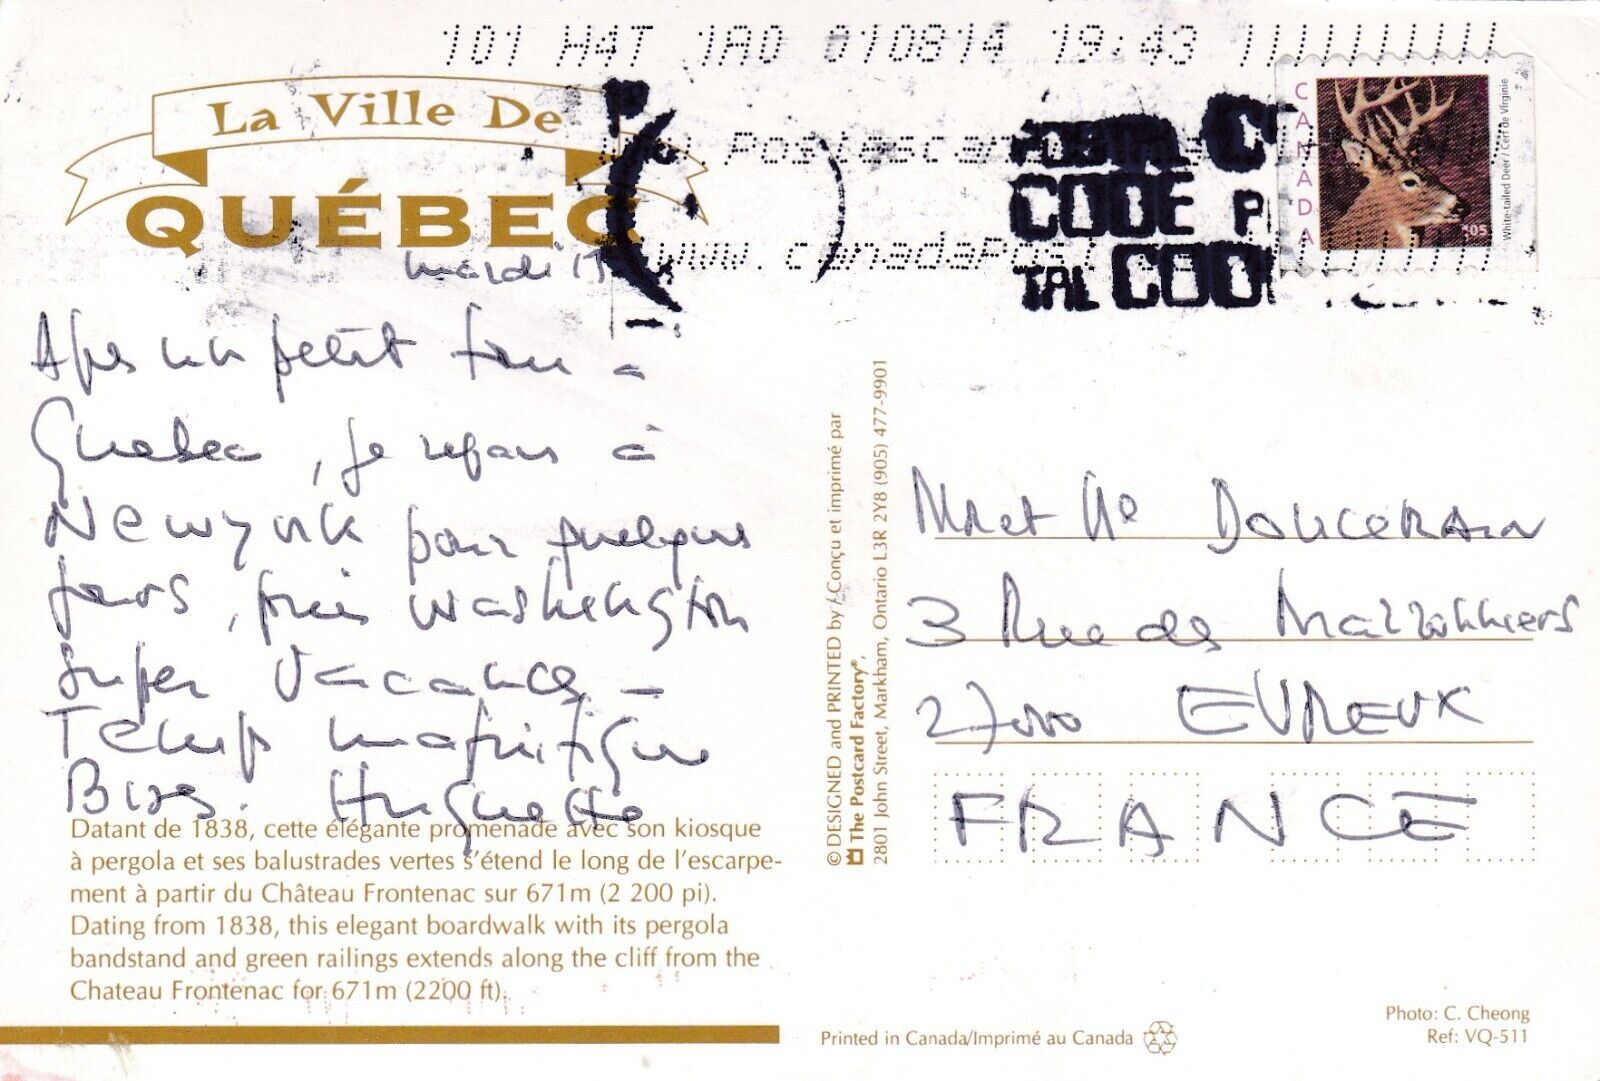 101 H4T 1A0 010814 19:43
La Ville De
QUÉBEC
POSTAL CODE
www.canadaPost
CANADA
White-tailed Deer / Cerf de Virginie
mardi
Apes un petit tour a
Quebec, je repars à
Newyork pour quelques
jours, puis Washington
super vacances -
Temps magnifique
Bises. Huguette
Datant de 1838, cette élégante promenade avec son kiosque
à pergola et ses balustrades vertes s'étend le long de l'escarpe-
ment à partir du Château Frontenac sur 671m (2 200 pi).
Dating from 1838, this elegant boardwalk with its pergola
bandstand and green railings extends along the cliff from the
Chateau Frontenac for 671m (2200 ft).
© DESIGNED and PRINTED by / Conçu et imprimé par
The Postcard Factory®,
2801 John Street, Markham, Ontario L3R 2Y8 (905) 477-9901
Mr et Me DOUCERAIN
3 Rue de
27000 EVREUX
FRANCE
Photo: C. Cheong
Ref: VQ-511
Printed in Canada/Imprimé au Canada